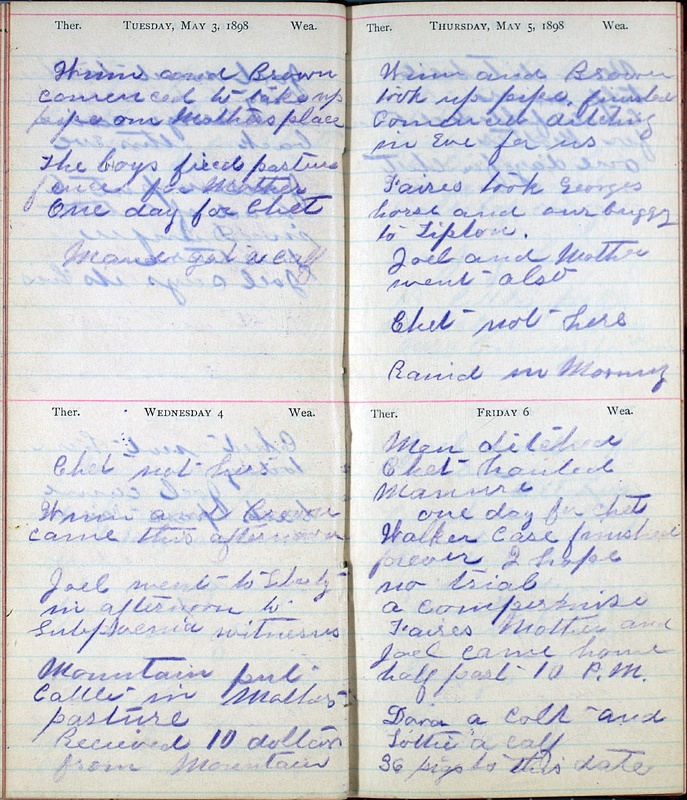 Ther. TUESDAY, MAY 3, 1898 Wea.
Winn and Brown
comenced to take up
pipe on Mothers place
The boys fixed pasture
fence for Mother
One day for Chet
Maud got a calf
Ther. WEDNESDAY 4 Wea.
Chet not here
Winn and Brown
came this afternoon
Joel went to Liberty
in afternoon to
Subphoenia witnesses
Mountain put
Cattle in Mothers
pasture
Recieved 10 dollars
from Mountain
Ther. THURSDAY, MAY 5, 1898 Wea.
Winn and Brown
took up pipe, finished
Comenced ditching
in Eve for us
Faires took Georges
horse and our buggy
to Tipton.
Joel and Mother
went also
Chet not here
Raind in Morning
Ther. FRIDAY 6 Wea.
Men ditched
Chet hauled
Manure
one day for Chet
Walker Case finished
forever I hope
no trial
a compermise
Faires Mother and
Joel came home
half past 10 P.M.
Dora a colt and
Lottie a calf
36 pigs to this date